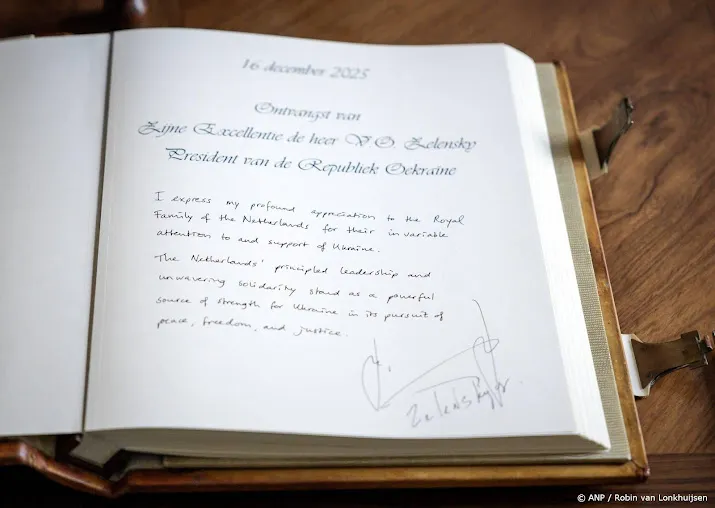 16 december 2025
Ontvangst van
Zijne Excellentie de heer V.O. Zelensky
President van de Republiek Oekraïne
I express my profound appreciation to the Royal
Family of the Netherlands for their invariable
attention to and support of Ukraine.
The Netherlands' principled leadership and
unwavering solidarity stand as a powerful
source of strength for Ukraine in its pursuit of
peace, freedom, and justice.
Zelenskyy
© ANP / Robin van Lonkhuijsen